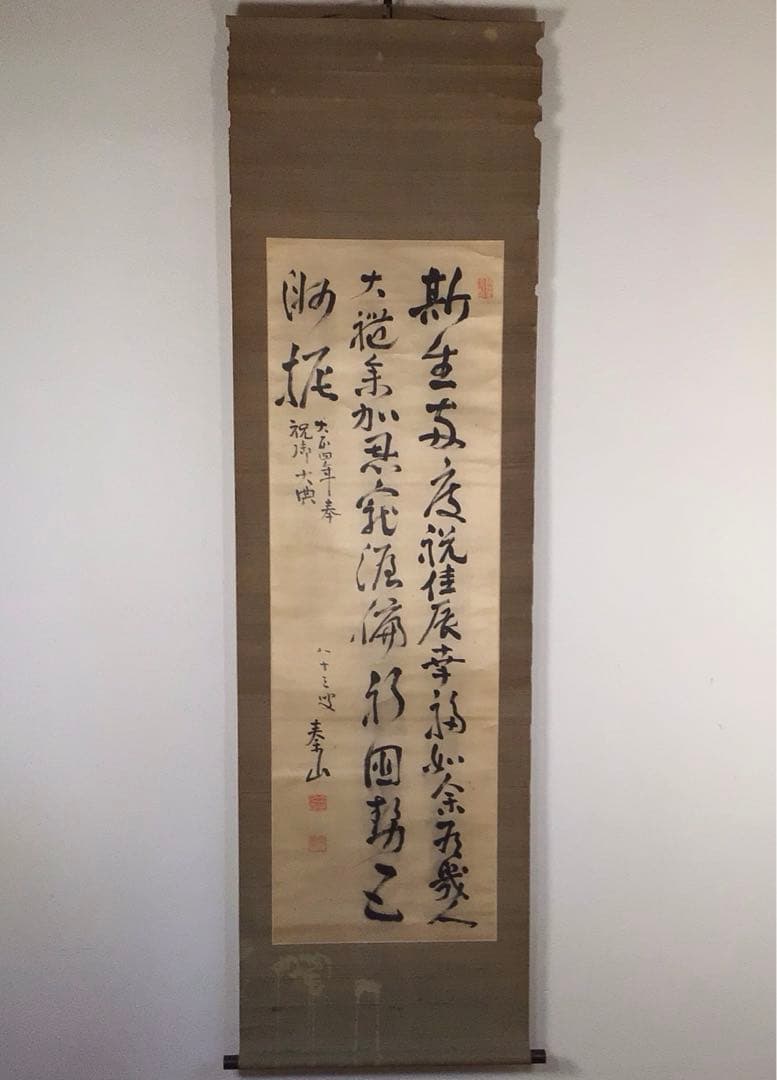 斯生両度祝佳辰幸福如余有幾人
大礼参加恩寵渥偏祈国勢已
振
大正四年奉
祝御大典
八十三叟
秦山